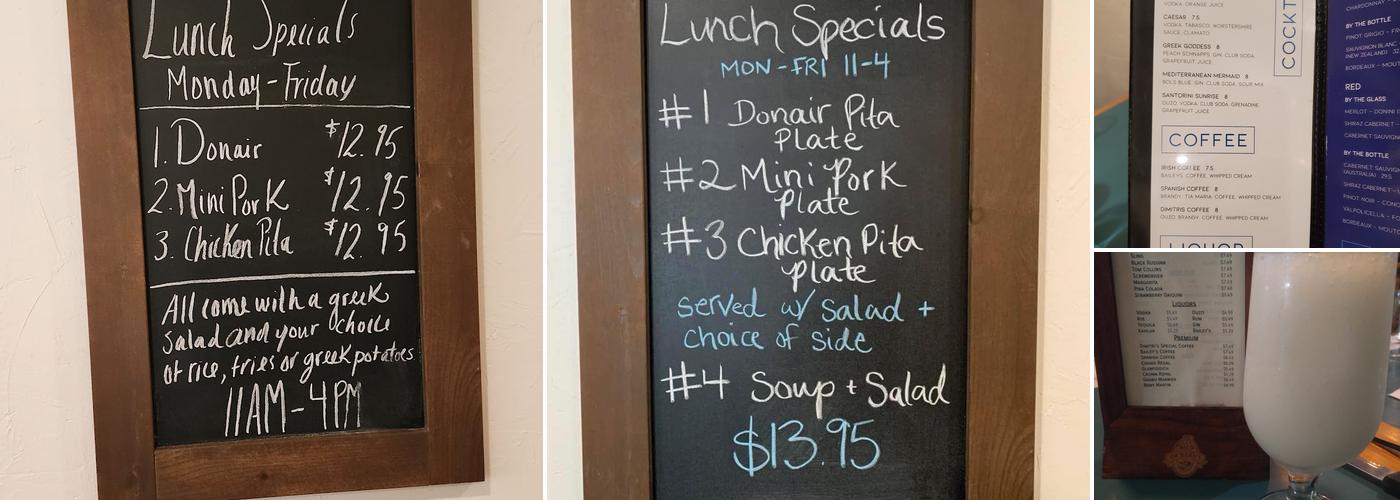 Lunch Specials
Monday-Friday
1. Donair $12.95
2. Mini Pork $12.95
3. Chicken Pita $12.95
All come with a greek
salad and your choice
of rice, fries or greek potatoes
11AM-4PM
Lunch Specials
MON-FRI 11-4
#1 Donair Pita
Plate
#2 Mini Pork
Plate
#3 Chicken Pita
Plate
served w/ Salad +
choice of side
#4 Soup + Salad
$13.95
VODKA, ORANGE JUICE
CAESAR 7.5
VODKA, TABASCO, WORSTERSHIRE
SAUCE, CLAMATO
GREEK GODDESS 8
PEACH SCHNAPPS, GIN, CLUB SODA,
GRAPEFRUIT JUICE
MEDITERRANEAN MERMAID 8
BOLS BLUE, GIN, CLUB SODA, SOUR MIX
SANTORINI SUNRISE 8
OUZO, VODKA, CLUB SODA, GRENADINE,
GRAPEFRUIT JUICE
COCKT
COFFEE
IRISH COFFEE 7.5
BAILEYS, COFFEE, WHIPPED CREAM
SPANISH COFFEE 8
BRANDY, TIA MARIA, COFFEE, WHIPPED CREAM
DIMITRIS COFFEE 8
OUZO, BRANDY, COFFEE, WHIPPED CREAM
LIQUOR
CHARDONNAY
BY THE BOTTLE
PINOT GRIGIO
SAUVIGNON BLANC
(NEW ZEALAND)
BORDEAUX - MOUT
RED
BY THE GLASS
MERLOT
SHIRAZ CABERNET
CABERNET SAUVIGN
BY THE BOTTLE
CABERNET SAUV
(AUSTRALIA) 29.5
SHIRAZ CABERNET
PINOT NOIR
VALPOLICELLA
BORDEAUX - MOUT
SLING
BLACK RUSSIAN
TOM COLLINS
SCREWDRIVER
MARGARITA
PINA COLADA
STRAWBERRY DAIQUIRI
LIQUORS
VODKA
RYE
TEQUILA
KAHLUA
OUZO
RUM
GIN
BAILEY'S
PREMIUM
DIMITRI'S SPECIAL COFFEE
BAILEY'S COFFEE
SPANISH COFFEE
CHIVAS REGAL
GLENFIDDICH
CROWN ROYAL
GRAND MARNIER
REMY MARTIN